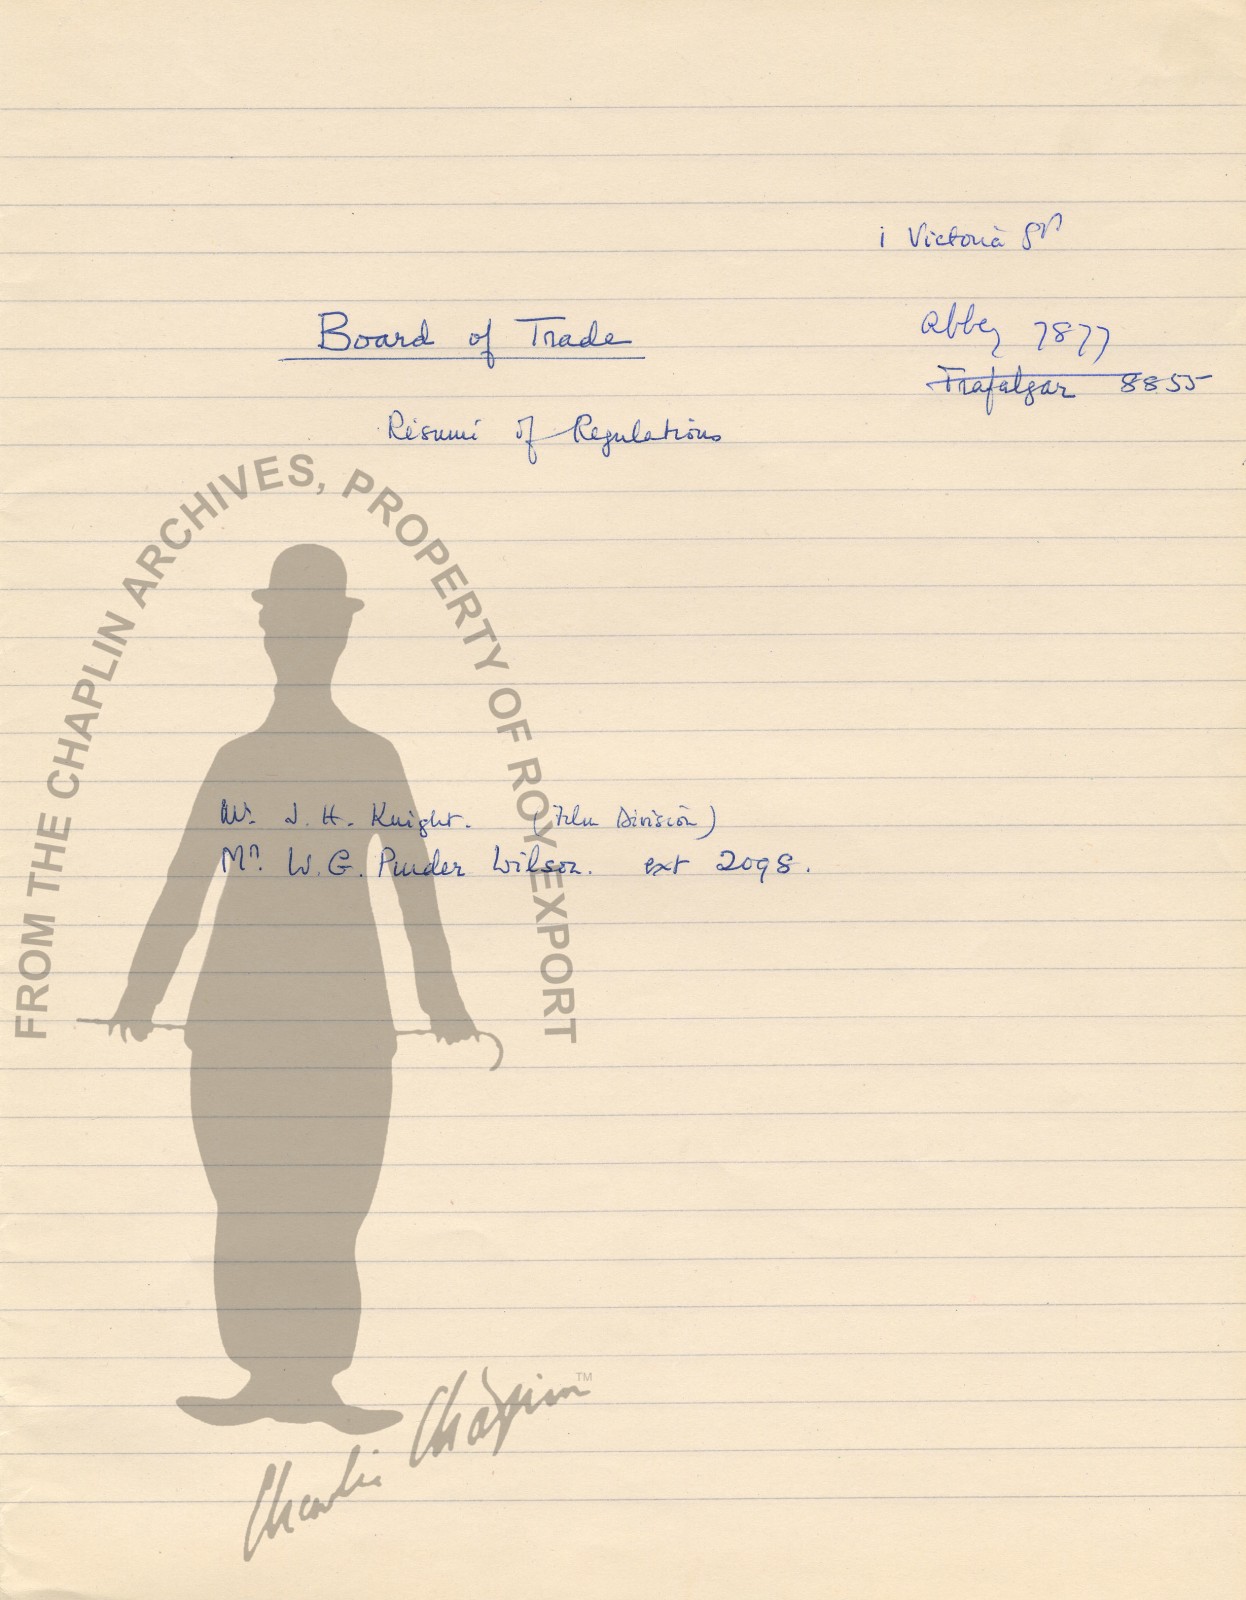 1 Victoria St
Board of Trade
Abbey 7877
Trafalgar 8855
Résumé of Regulations
FROM THE CHAPLIN ARCHIVES, PROPERTY OF ROY EXPORT
Mr. J. H. Knight. (Film Division)
Mr. W. G. Pinder Wilson. ext 2098.
Charlie Chaplin TM